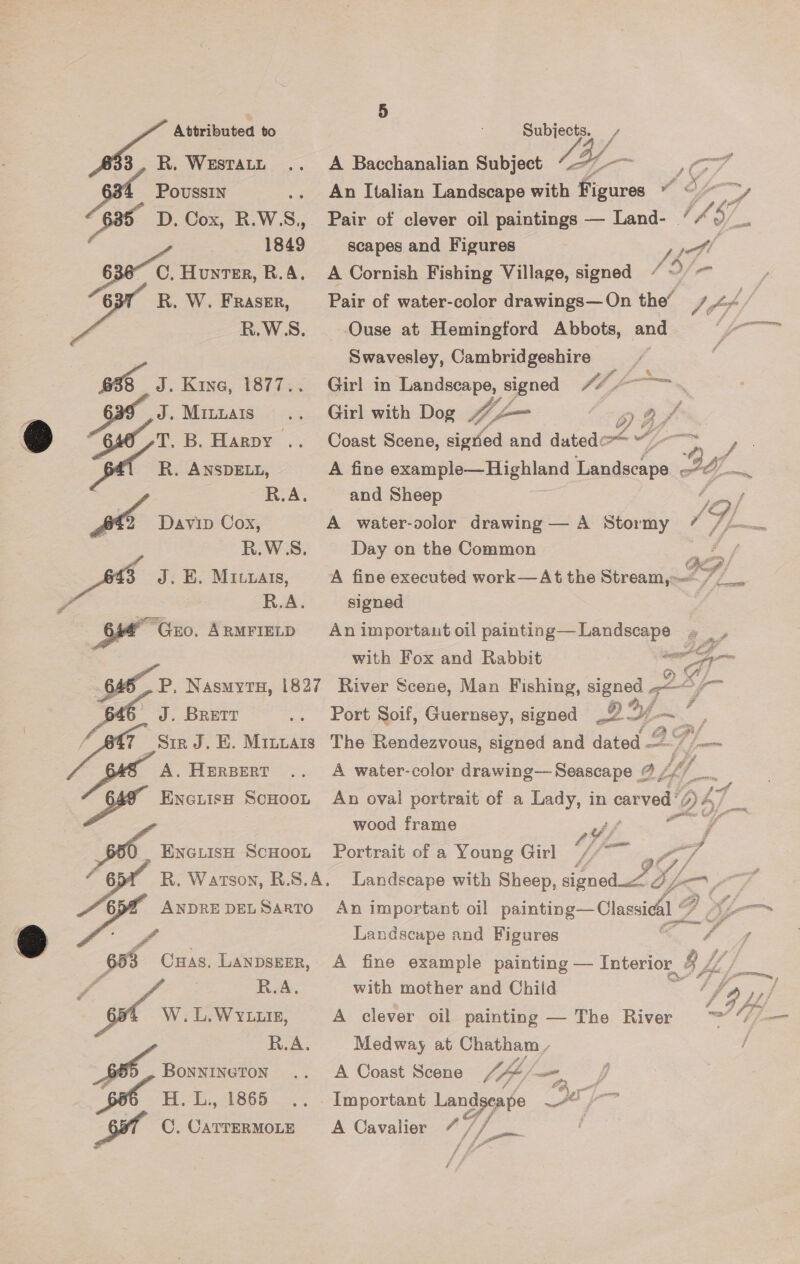 5
Attributed to Subjects.
633 R. WESTALL .. A Bacchanalian Subject
634 POUSSIN .. An Italian Landscape with Figures
635 D. COX, R.W.S., Pair of clever oil paintings — Land-
1849 scapes and Figures
636 C. HUNTER, R.A. A Cornish Fishing Village, signed
637 R. W. FRASER, Pair of water-color drawings—On the
R.W.S. Ouse at Hemingford Abbots, and
Swavesley, Cambridgeshire
638 J. KING, 1877.. Girl in Landscape, signed
639 J. MILLAIS .. Girl with Dog
640 T. B. HARDY .. Coast Scene, signed and dated
641 R. ANSDELL, A fine example—Highland Landscape
R.A. and Sheep
642 DAVID COX, A water-color drawing — A Stormy
R.W.S. Day on the Common
643 J. E. MILLAIS, A fine executed work—At the Stream,
R.A. signed
644 GEO. ARMFIELD An important oil painting—Landscape
with Fox and Rabbit
645 P. NASMYTH, 1827 River Scene, Man Fishing, signed
646 J. BRETT .. Port Soif, Guernsey, signed
647 SIR J. E. MILLAIS The Rendezvous, signed and dated
648 A. HERBERT .. A water-color drawing—Seascape
649 ENGLISH SCHOOL An oval portrait of a Lady, in carved
wood frame
650 ENGLISH SCHOOL Portrait of a Young Girl
651 R. WATSON, R.S.A. Landscape with Sheep, signed
652 ANDRE DEL SARTO An important oil painting—Classical
Landscape and Figures
653 CHAS. LANDSEER, A fine example painting — Interior
R.A. with mother and Child
654 W. L. WYLLIE, A clever oil painting — The River
R.A. Medway at Chatham
655 BONNINGTON .. A Coast Scene
656 H. L., 1865 .. Important Landscape
657 C. CATTERMOLE A Cavalier